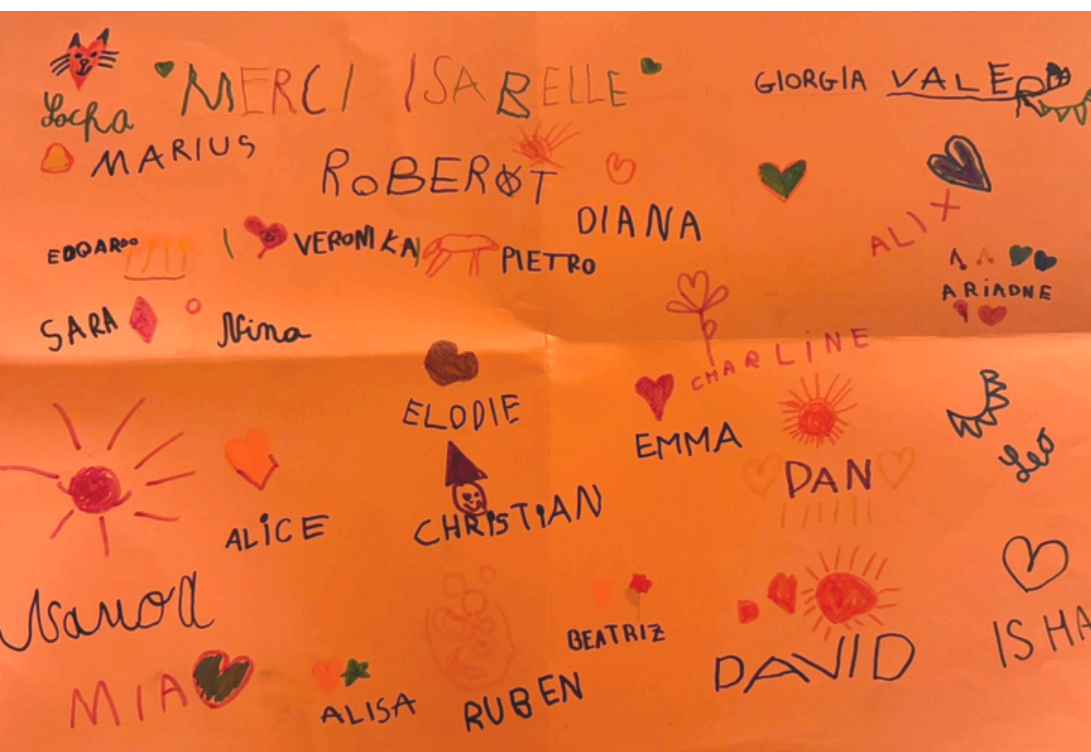 MERCI ISABELLE
GIORGIA VALE
Socha
MARIUS
ROBERT
DIANA
ALIX
EDOARDO
VERONIKA
PIETRO
ARIADNE
SARA
Nina
CHARLINE
ELODIE
EMMA
Leo
DAN
ALICE
CHRISTIAN
ISHA
BEATRIZ
DAVID
MIA
ALISA
RUBEN